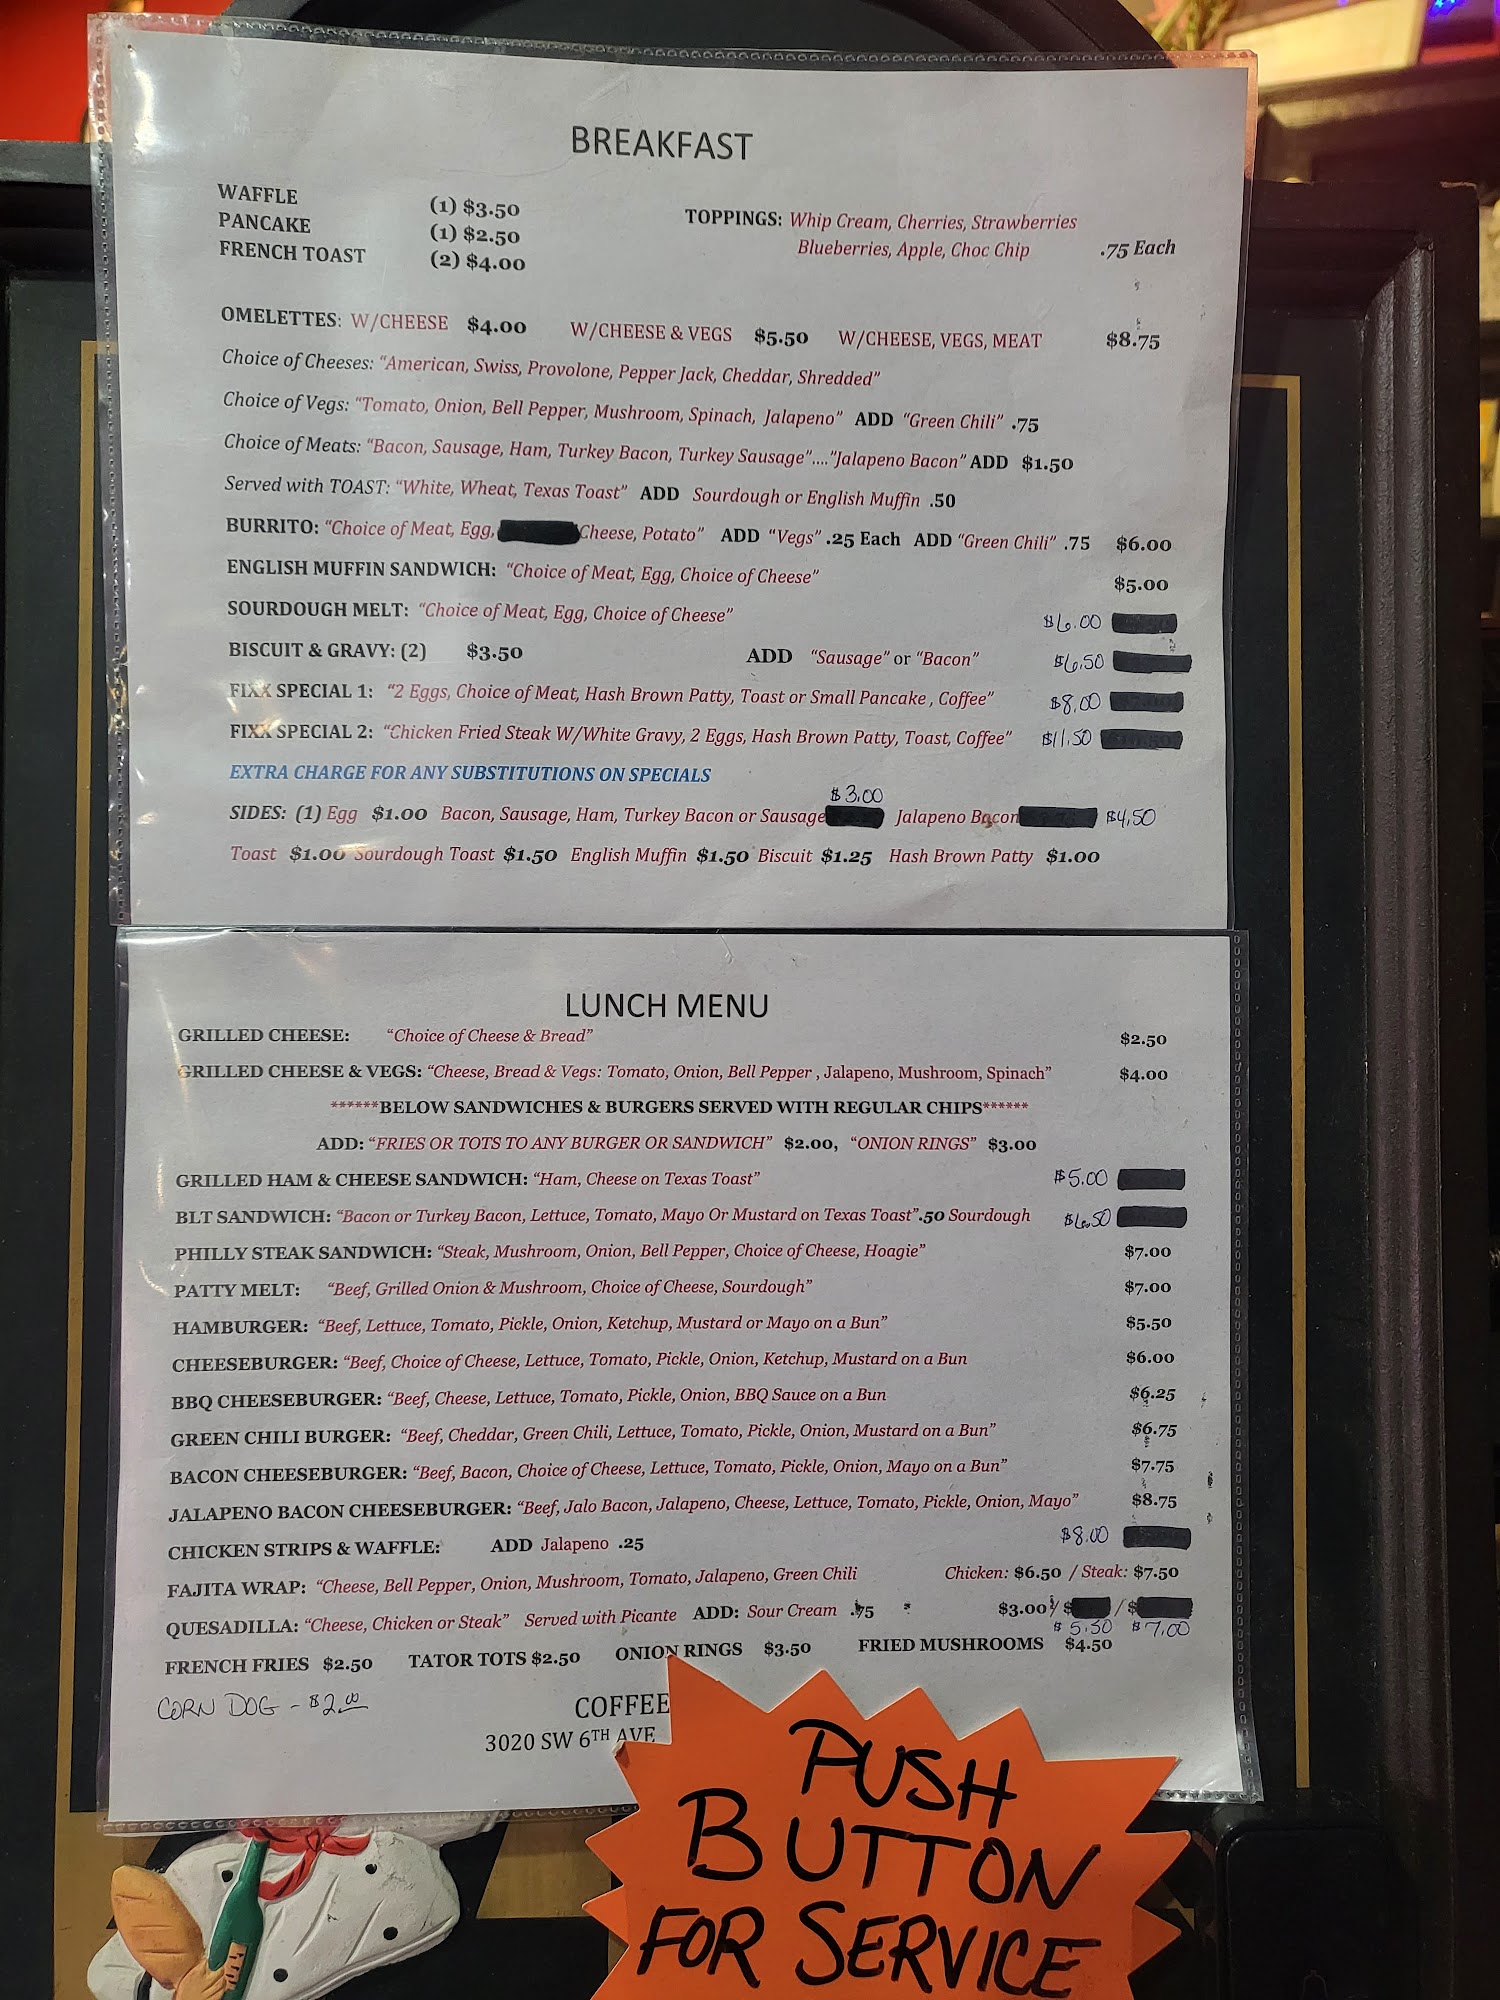 BREAKFAST
WAFFLE (1) $3.50
PANCAKE (1) $2.50 TOPPINGS: Whip Cream, Cherries, Strawberries
FRENCH TOAST (2) $4.00 Blueberries, Apple, Choc Chip .75 Each
OMELETTES: W/CHEESE $4.00 W/CHEESE & VEGS $5.50 W/CHEESE, VEGS, MEAT $8.75
Choice of Cheeses: "American, Swiss, Provolone, Pepper Jack, Cheddar, Shredded"
Choice of Vegs: "Tomato, Onion, Bell Pepper, Mushroom, Spinach, Jalapeno" ADD "Green Chili" .75
Choice of Meats: "Bacon, Sausage, Ham, Turkey Bacon, Turkey Sausage"...."Jalapeno Bacon" ADD $1.50
Served with TOAST: "White, Wheat, Texas Toast" ADD Sourdough or English Muffin .50
BURRITO: "Choice of Meat, Egg, Cheese, Potato" ADD "Vegs" .25 Each ADD "Green Chili" .75 $6.00
ENGLISH MUFFIN SANDWICH: "Choice of Meat, Egg, Choice of Cheese" $5.00
SOURDOUGH MELT: "Choice of Meat, Egg, Choice of Cheese" $6.00
BISCUIT & GRAVY: (2) $3.50 ADD "Sausage" or "Bacon" $6.50
FIXX SPECIAL 1: "2 Eggs, Choice of Meat, Hash Brown Patty, Toast or Small Pancake , Coffee" $8.00
FIXX SPECIAL 2: "Chicken Fried Steak W/White Gravy, 2 Eggs, Hash Brown Patty, Toast, Coffee" $11.50
EXTRA CHARGE FOR ANY SUBSTITUTIONS ON SPECIALS
$3.00
SIDES: (1) Egg $1.00 Bacon, Sausage, Ham, Turkey Bacon or Sausage Jalapeno Bacon $4.50
Toast $1.00 Sourdough Toast $1.50 English Muffin $1.50 Biscuit $1.25 Hash Brown Patty $1.00
LUNCH MENU
GRILLED CHEESE: "Choice of Cheese & Bread" $2.50
GRILLED CHEESE & VEGS: "Cheese, Bread & Vegs: Tomato, Onion, Bell Pepper , Jalapeno, Mushroom, Spinach" $4.00
******BELOW SANDWICHES & BURGERS SERVED WITH REGULAR CHIPS******
ADD: "FRIES OR TOTS TO ANY BURGER OR SANDWICH" $2.00, "ONION RINGS" $3.00
GRILLED HAM & CHEESE SANDWICH: "Ham, Cheese on Texas Toast" $5.00
BLT SANDWICH: "Bacon or Turkey Bacon, Lettuce, Tomato, Mayo Or Mustard on Texas Toast".50 Sourdough $6.50
PHILLY STEAK SANDWICH: "Steak, Mushroom, Onion, Bell Pepper, Choice of Cheese, Hoagie" $7.00
PATTY MELT: "Beef, Grilled Onion & Mushroom, Choice of Cheese, Sourdough" $7.00
HAMBURGER: "Beef, Lettuce, Tomato, Pickle, Onion, Ketchup, Mustard or Mayo on a Bun" $5.50
CHEESEBURGER: "Beef, Choice of Cheese, Lettuce, Tomato, Pickle, Onion, Ketchup, Mustard on a Bun $6.00
BBQ CHEESEBURGER: "Beef, Cheese, Lettuce, Tomato, Pickle, Onion, BBQ Sauce on a Bun $6.25
GREEN CHILI BURGER: "Beef, Cheddar, Green Chili, Lettuce, Tomato, Pickle, Onion, Mustard on a Bun" $6.75
BACON CHEESEBURGER: "Beef, Bacon, Choice of Cheese, Lettuce, Tomato, Pickle, Onion, Mayo on a Bun" $7.75
JALAPENO BACON CHEESEBURGER: "Beef, Jalo Bacon, Jalapeno, Cheese, Lettuce, Tomato, Pickle, Onion, Mayo" $8.75
CHICKEN STRIPS & WAFFLE: ADD Jalapeno .25 $8.00
FAJITA WRAP: "Cheese, Bell Pepper, Onion, Mushroom, Tomato, Jalapeno, Green Chili Chicken: $6.50 / Steak: $7.50
QUESADILLA: "Cheese, Chicken or Steak" Served with Picante ADD: Sour Cream .75 $3.00 / $ / $
$5.50 $7.00
FRENCH FRIES $2.50 TATOR TOTS $2.50 ONION RINGS $3.50 FRIED MUSHROOMS $4.50
CORN DOG - $2.00
COFFEE
3020 SW 6TH AVE
PUSH
BUTTON
FOR SERVICE